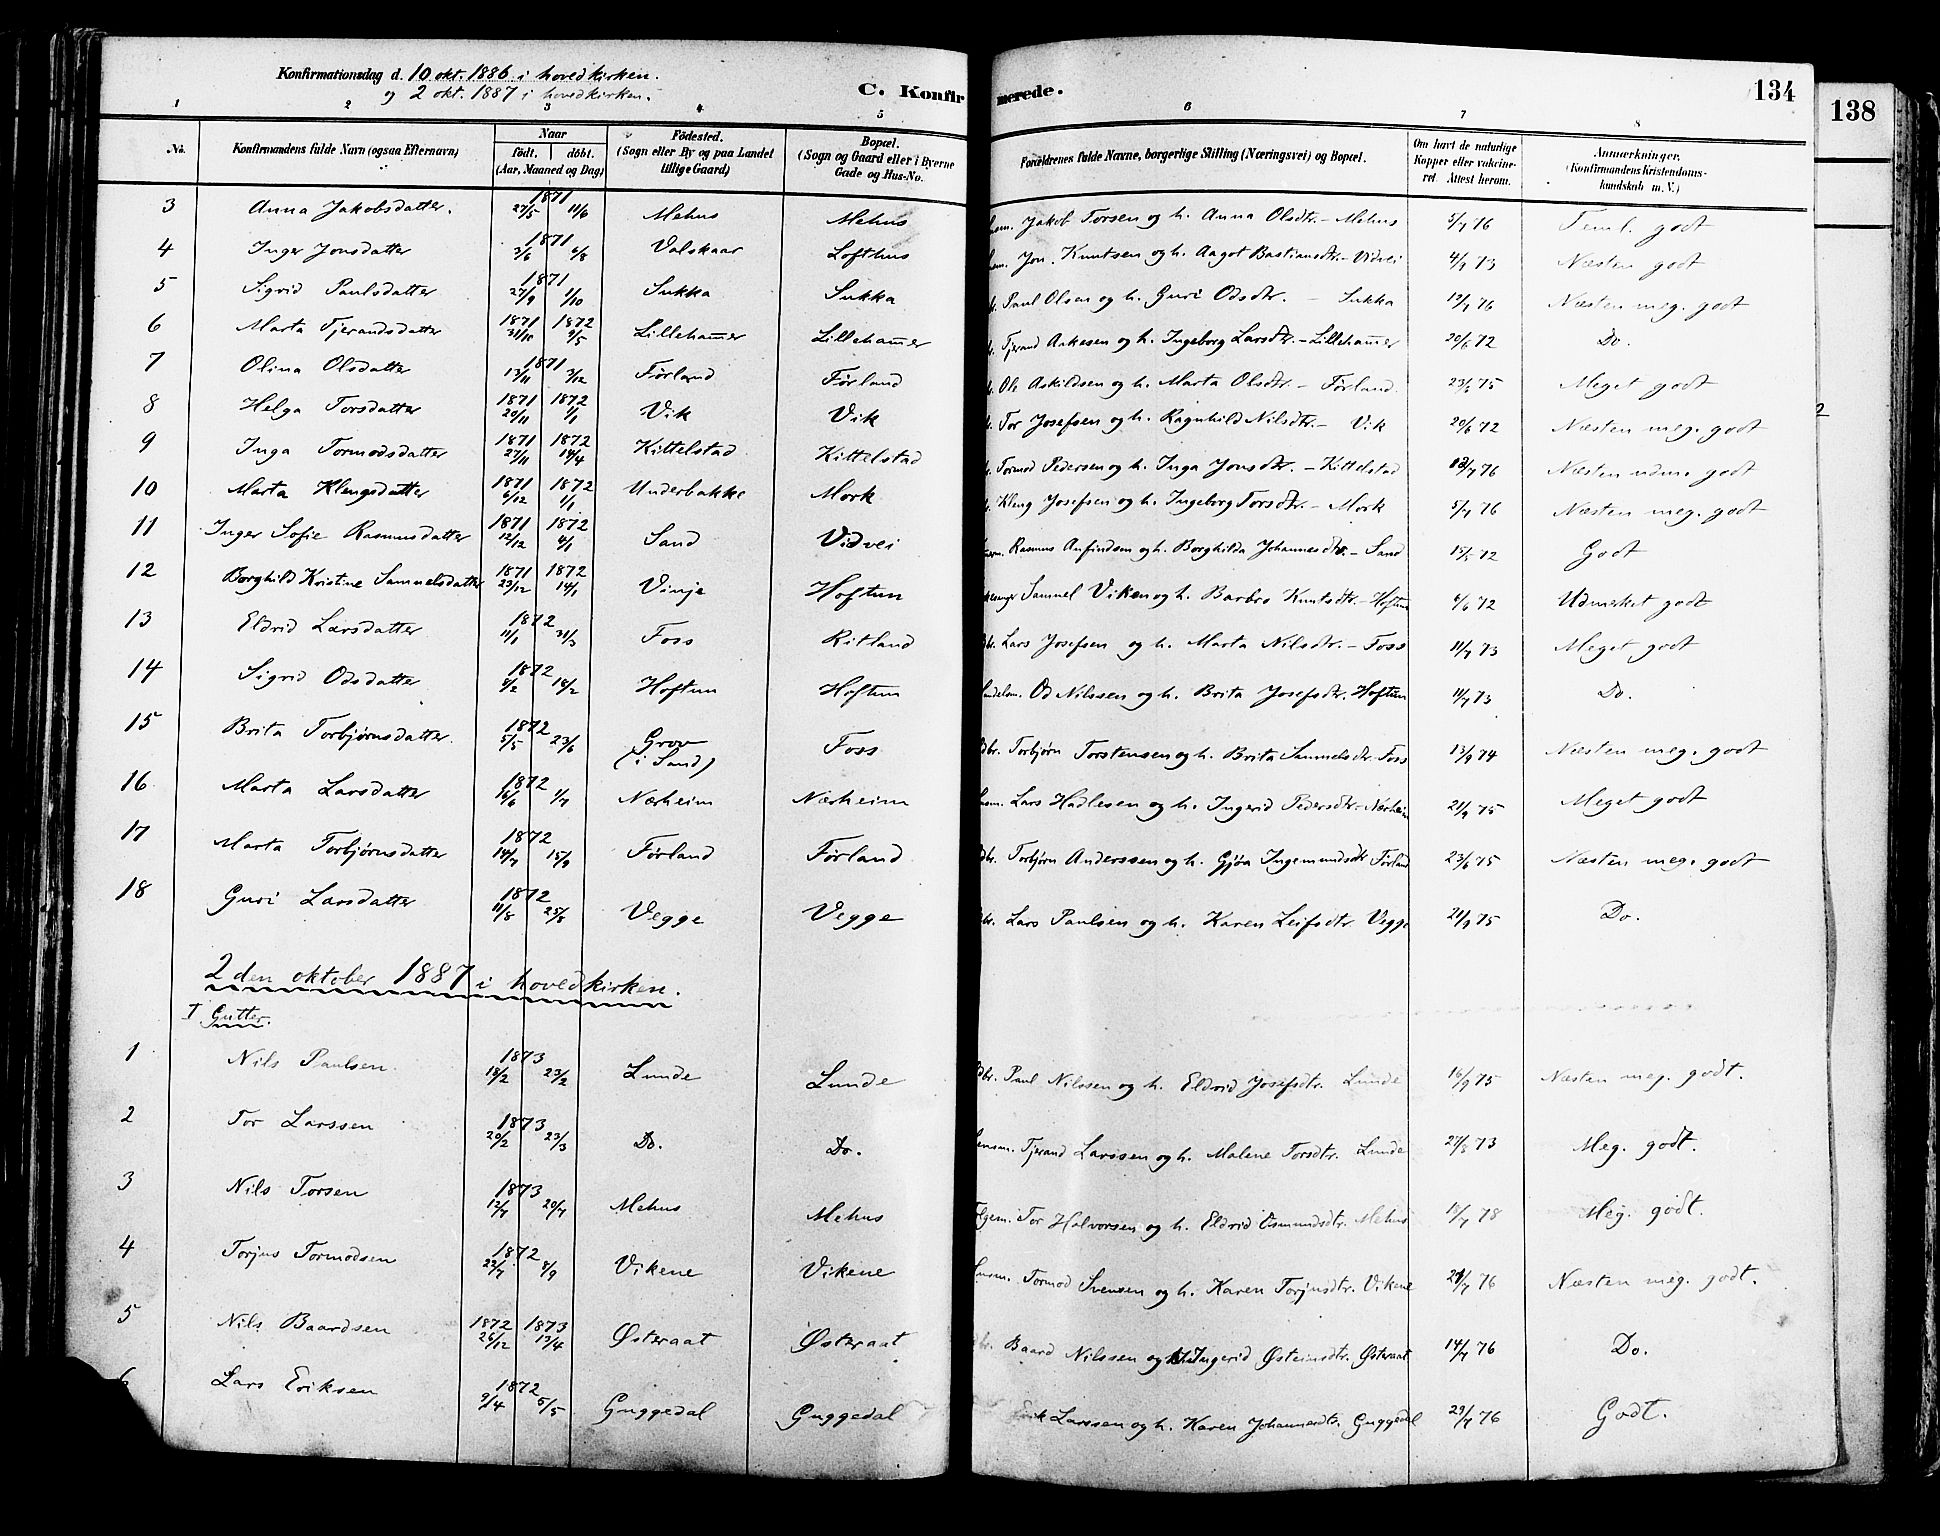 Konfirmationsdag d. 10 okt. 1886 i hovedkirken.
og 2 okt. 1887 i hovedkirken.
C. Konfirmerede.
134
138
1 2 3 4 5 6 7 8
No. Konfirmandens fulde Navn (ogsaa Efternavn) Naar født, døbt. (Aar, Maaned og Dag) Födested. (Sogn eller By og paa Landet tillige Gaard) Bopæl. (Sogn og Gaard eller i Byerne Gade og Hus-No. Forældrenes fulde Navne, borgerlige Stilling (Næringsvei) og Bopæl. Om havt de naturlige Kopper eller vakcineret. Attest herom. Anmærkninger. (Konfirmandens Kristendomskundskab m. V.)
3 Anna Jakobsdatter. 1871 27/5 11/6 Mehus Mehus Jakob Torsen og h. Anna Olsdtr. - Mehus 5/7 76 Teml. godt
4 Inger Jonsdatter 1871 3/6 6/8 Valskaar Lofthus Jon Knutsen og h. Aagot Bastiansdtr. - Vidvei 4/7 73 Næsten godt
5 Sigrid Paulsdatter 1871 27/9 1/10 Sukka Sukka Paul Olsen og h. Guri Odsdtr. - Sukka 12/7 76 Næsten meg. godt
6 Marta Tjerandsdatter 1871 31/10 1872 9/5 Lillehammer Lillehammer Tjerand Aakesen og h. Ingeborg Larsdtr. - Lillehammer 20/6 72 Do.
7 Olina Olsdatter 1871 13/11 3/12 Førland Førland Ole Askildsen og h. Marta Olsdtr. - Førland 23/6 75 Meget godt
8 Helga Torsdatter 1871 20/11 1872 1/1 Vik Vik Tor Josefsen og h. Ragnhild Nilsdtr. - Vik 20/6 72 Næsten meg. godt
9 Inga Tormodsdatter 1871 27/11 1872 14/4 Kittelstad Kittelstad Tormod Pedersen og h. Inga Jonsdtr. - Kittelstad 12/7 76 Næsten udm. godt
10 Marta Klengsdatter 1871 6/12 1872 1/1 Underbakke Mork Kleng Josefsen og h. Ingeborg Torsdtr. - Mork 5/7 76 Næsten meg. godt
11 Inger Sofie Rasmusdatter 1871 12/12 1872 4/1 Sand Vidvei Rasmus Anfindsen og h. Borghilda Johannesdtr. - Sand 15/5 72 Godt
12 Borghild Kristine Samuelsdatter 1871 23/12 1872 14/1 Vinje Hoftun Samuel Viken og h. Barbro Knutsdtr. - Hoftun 6/6 72 Udmerket godt
13 Eldrid Larsdatter 1872 11/1 31/3 Foss Ritland Lars Josefsen og h. Marta Nilsdtr. - Foss 11/7 73 Meget godt
14 Sigrid Odsdatter 1872 8/2 18/2 Hoftun Hoftun Od Nilssen og h. Brita Josefsdtr. Hoftun 11/7 73 Do.
15 Brita Torbjørnsdatter. 1872 5/5 23/6 Grov (i Sand) Foss Torbjørn Torstensen og h. Brita Samuelsdtr. Foss 13/9 74 Næsten meg. godt
16 Marta Larsdatter 1872 16/6 1/7 Nærheim Nærheim Lars Hadlesen og h. Ingerid Pedersdtr. - Nærheim 21/9 75 Meget godt
17 Marta Torbjørnsdatter 1872 14/7 15/9 Førland Førland Torbjørn Anderssen og h. Gjøa Ingemundsdtr Førland 23/6 75 Næsten meg. godt
18 Guri Larsdatter 1872 11/8 25/8 Vegge Vegge Lars Paulsen og h. Karen Leifsdtr. Vegge 21/9 75 Do.
2den oktober 1887 i hovedkirken.
I Gutter.
1 Nils Paulsen. 1873 18/2 23/2 Lunde Lunde Paul Nilssen og h. Eldrid Josefsdtr. Lunde 16/9 75 Næsten meg. godt.
2 Tor Larssen 1873 20/2 23/3 Do. Do. Tjerand Larssen og h. Malene Torsdtr. Lunde 27/5 73 Meg. godt.
3 Nils Torsen 1873 12/7 20/7 Mehus Mehus Tor Halvorsen og h. Eldrid Osmundsdtr. Mehus 18/7 78 Meg. godt.
4 Torjus Tormodsen 1872 22/7 8/9 Vikene Vikene Tormod Svensen og h. Karen Torjusdtr. Vikene 21/7 76 Næsten meg. godt.
5 Nils Baardsen 1872 26/12 1873 13/4 Østeraat Østeraat Baard Nilssen og Ingerid Østeinsdtr. Østeraat 14/7 76 Do.
Lars Eriksen 1872 9/4 5/5 Guggedal Guggedal Erik Larssen og h. Karen Johannesdtr. Guggedal 29/7 76 Godt.